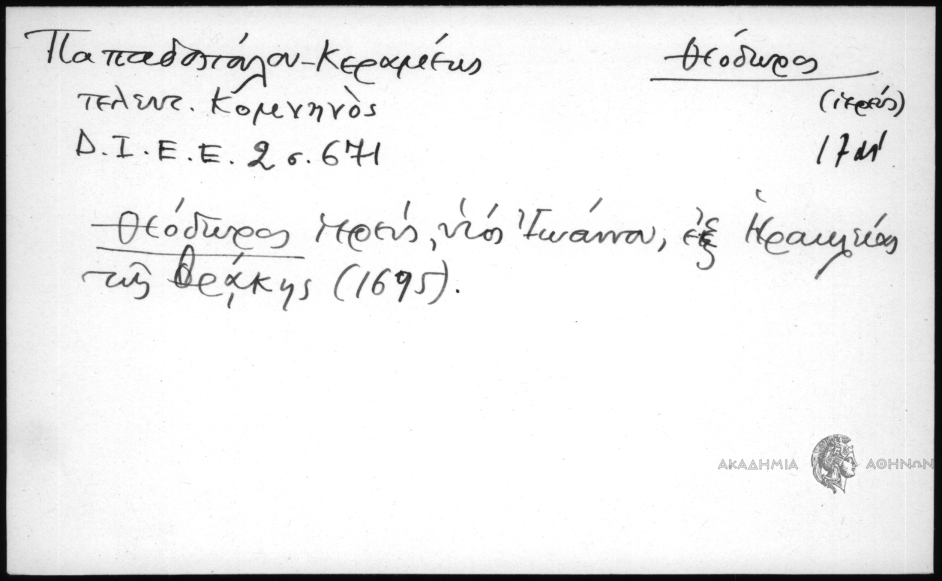 Παπαδοπούλου-Κεραμέως Θεόδωρος
τελευτ. Κομνηνὸς (ἱερεύς)
Δ.Ι.Ε.Ε. 2 σ. 671
Θεόδωρος ἱερεύς, υἱός Ἰωάννου, ἐξ Ἡρακλείας
τῆς Θράκης (1695).
ΑΚΑΔΗΜΙΑ ΑΘΗΝΩΝ